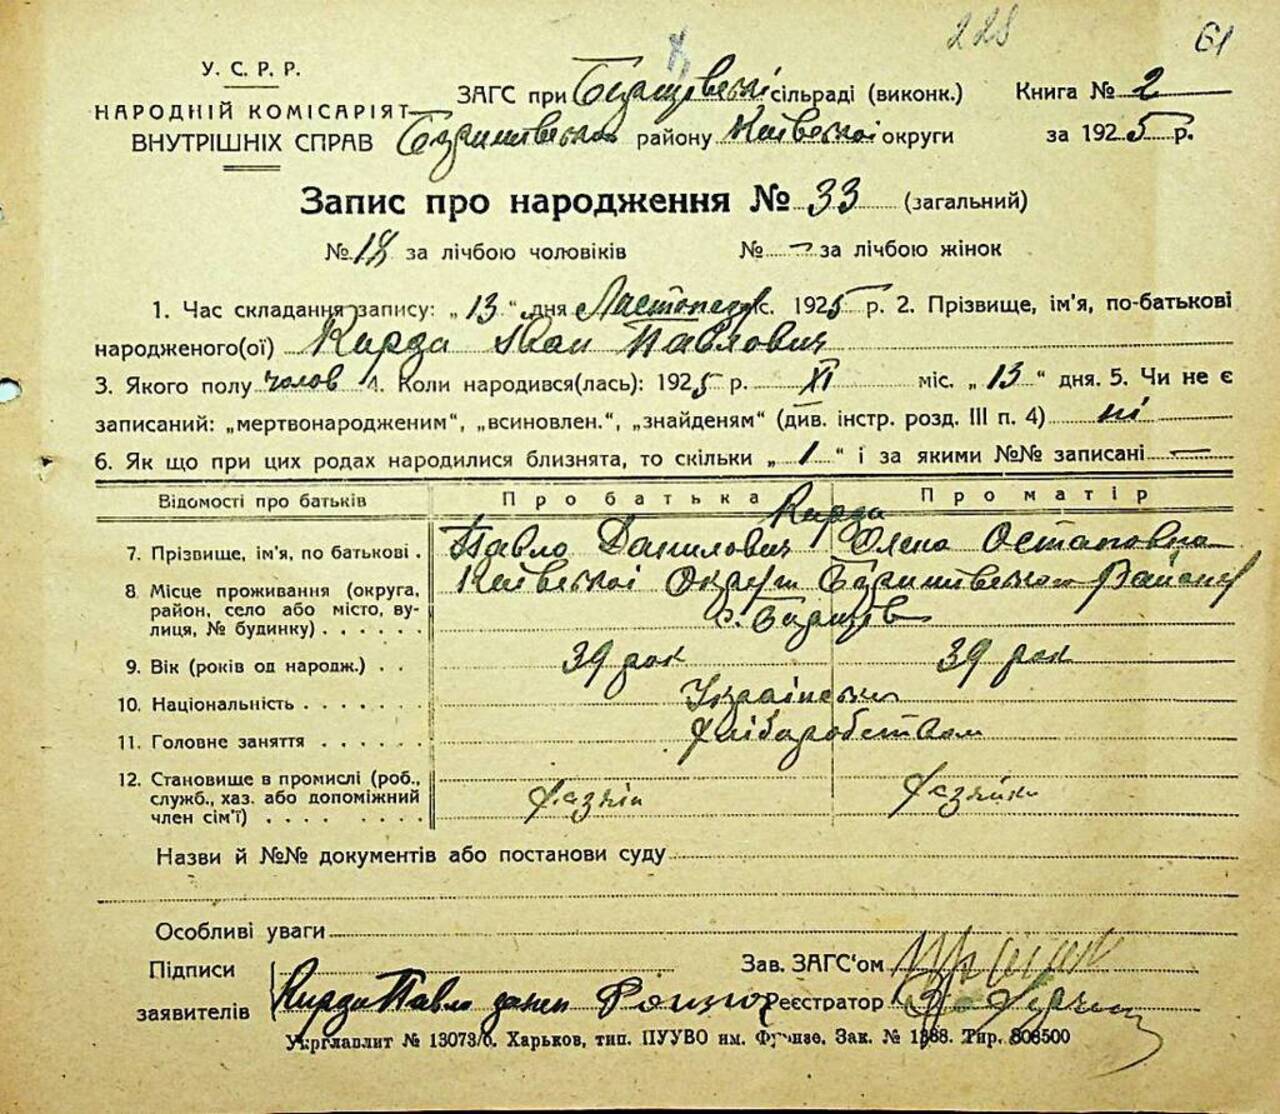 228 61
У. С. Р. Р.
НАРОДНІЙ КОМІСАРІЯТ
ВНУТРІШНІХ СПРАВ
ЗАГС при сільраді (виконк.) Книга № 2
району Київської округи за 1925 р.
Запис про народження № 33 (загальний)
№ 18 за лічбою чоловіків № — за лічбою жінок
1. Час складання запису: „ 13 “ дня Листопада с. 1925 р. 2. Прізвище, ім'я, по-батькові
народженого(ої) Кирда Іван Павлович
3. Якого полу чолов 4. Коли народився(лась): 1925 р. XI міс. „ 13 “ дня. 5. Чи не є
записаний: „мертвонародженим“, „всиновлен.“, „знайденям“ (див. інстр. розд. III п. 4) ні
6. Як що при цих родах народилися близнята, то скільки „ 1 “ і за якими №№ записані —
Відомості про батьків Про батька Про матір
Кирда
7. Прізвище, ім'я, по батькові . Павло Данилович Олена Остаповна
8 Місце проживання (округа, район, село або місто, вулиця, № будинку) . . . . . . Київської Округи Району
с.
9. Вік (років од народж.) . . 39 рок 39 рок
10. Національність . . . . . . . Українська
11. Головне заняття . . . . . . Хліборобством
12. Становище в промислі (роб., служб., хаз. або допоміжний член сім'ї) . . . . . . . Хазяїн Хазяйка
Назви й №№ документів або постанови суду
Особливі уваги
Підписи
заявителів Кирда Павло
Зав. ЗАГС'ом
Реєстратор
Укрглавліт № 13073/б. Харьков, тип. ПУУВО им. Фрунзе. Зак. № 1388. Тир. 808500